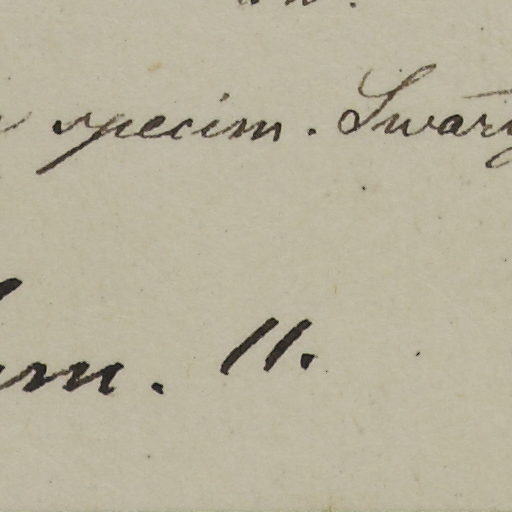 specim. Swar
m. 11.